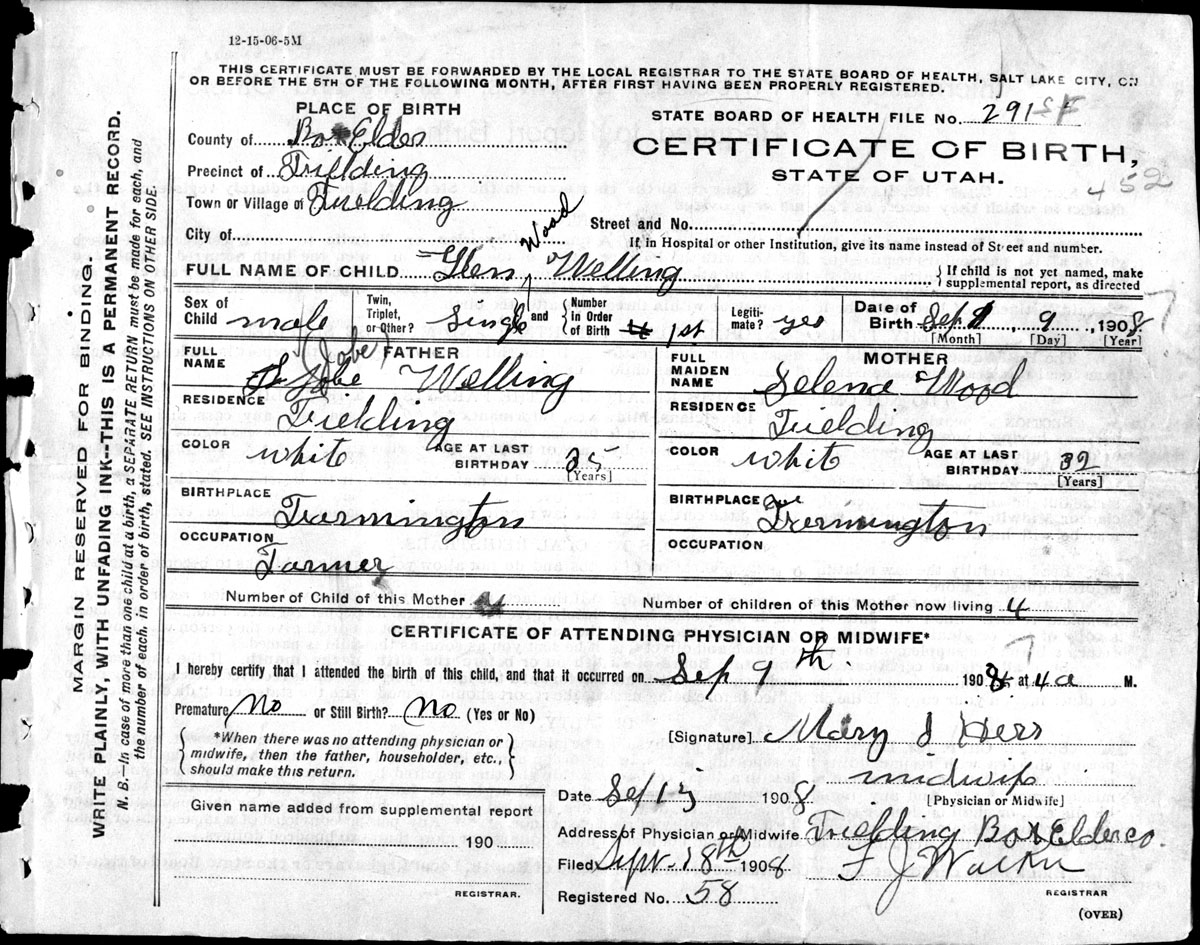 12-15-06-5M
THIS CERTIFICATE MUST BE FORWARDED BY THE LOCAL REGISTRAR TO THE STATE BOARD OF HEALTH, SALT LAKE CITY, ON
OR BEFORE THE 5TH OF THE FOLLOWING MONTH, AFTER FIRST HAVING BEEN PROPERLY REGISTERED.
PLACE OF BIRTH
STATE BOARD OF HEALTH FILE No. 291
County of Box Elder
CERTIFICATE OF BIRTH,
Precinct of Fielding
STATE OF UTAH.
452
Town or Village of Fielding
City of
Street and No.
If in Hospital or other Institution, give its name instead of Street and number.
FULL NAME OF CHILD Glen Wood Welling
If child is not yet named, make supplemental report, as directed
Sex of Child male
Twin, Triplet, or Other? Single and Number in Order of Birth 1st
Legitimate? yes
Date of Birth Sep 9, 1908
[Month] [Day] [Year]
FATHER
FULL NAME Jobe (Jobe) Welling
RESIDENCE Fielding
COLOR white
AGE AT LAST BIRTHDAY 35
[Years]
BIRTHPLACE Farmington
OCCUPATION Farmer
MOTHER
FULL MAIDEN NAME Selena Wood
RESIDENCE Fielding
COLOR white
AGE AT LAST BIRTHDAY 32
[Years]
BIRTHPLACE Farmington
OCCUPATION
Number of Child of this Mother
Number of children of this Mother now living 4
CERTIFICATE OF ATTENDING PHYSICIAN OR MIDWIFE*
I hereby certify that I attended the birth of this child, and that it occurred on Sep 9th 1908 at 4 a M.
Premature No or Still Birth? No (Yes or No)
*When there was no attending physician or
midwife, then the father, householder, etc.,
should make this return.
[Signature] Mary J Hess
midwife
[Physician or Midwife]
Date Sep 13 1908
Given name added from supplemental report
190
REGISTRAR.
Address of Physician or Midwife Fielding Box Elder co.
Filed Sept. 18th 1908 F J
REGISTRAR
Registered No. 58
(OVER)
MARGIN RESERVED FOR BINDING.
WRITE PLAINLY, WITH UNFADING INK--THIS IS A PERMANENT RECORD.
N. B.—In case of more than one child at a birth, a SEPARATE RETURN must be made for each, and
the number of each, in order of birth, stated. SEE INSTRUCTIONS ON OTHER SIDE.